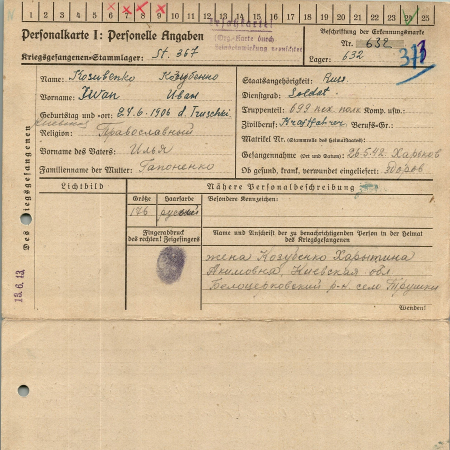 1 2 3 4 5 6 7 8 9 10 11 12 13 14 15 16 17 18 19 20 21 22 23 24 25
Personalkarte I: Personelle Angaben
Kriegsgefangenen-Stammlager: St. 367
Beschriftung der Erkennungsmarke
Nr. 632
Lager: 632
Des Kriegsgefangenen
Name: Kozubenko Козубенко
Vorname: Iwan Иван
Geburtstag und -ort: 24.6.1906 d. Truschki
Religion: Православный
Vorname des Vaters: Илья
Familienname der Mutter: Гапоненко
Staatsangehörigkeit: Russ.
Dienstgrad: Soldat
Truppenteil: 699 пех полк Komp. usw.:
Zivilberuf: Kraftfahrer Berufs-Gr.:
Matrikel Nr. (Stammrolle des Heimatstaates):
Gefangennahme (Ort und Datum): 26.5.42 Харьков
Ob gesund, krank, verwundet eingeliefert: Здоров
Lichtbild
Nähere Personalbeschreibung
Größe Haarfarbe
Besondere Kennzeichen:
русый
Fingerabdruck
des rechten! Zeigefingers
Name und Anschrift der zu benachrichtigenden Person in der Heimat
des Kriegsgefangenen
жена Козубенко Харытина
Акимовна, Киевская обл
Белоцерковский р-н. сем Трушки
Wenden!